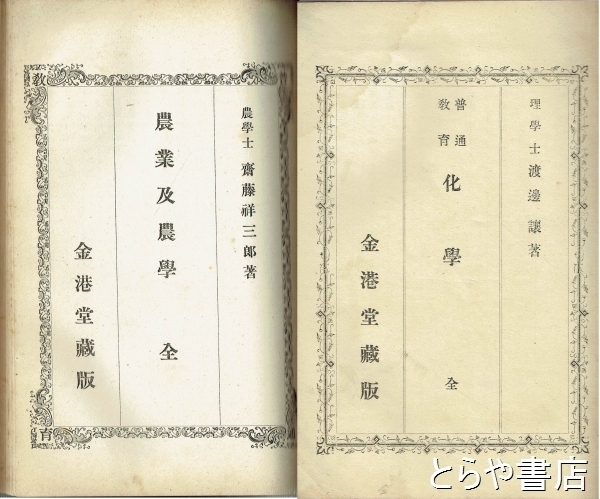 理學士渡邊讓著
普通
敎育
化學 全
金港堂藏版
農學士 齋藤祥三郎著
農業及農學 全
金港堂藏版
敎
育
とらや書店